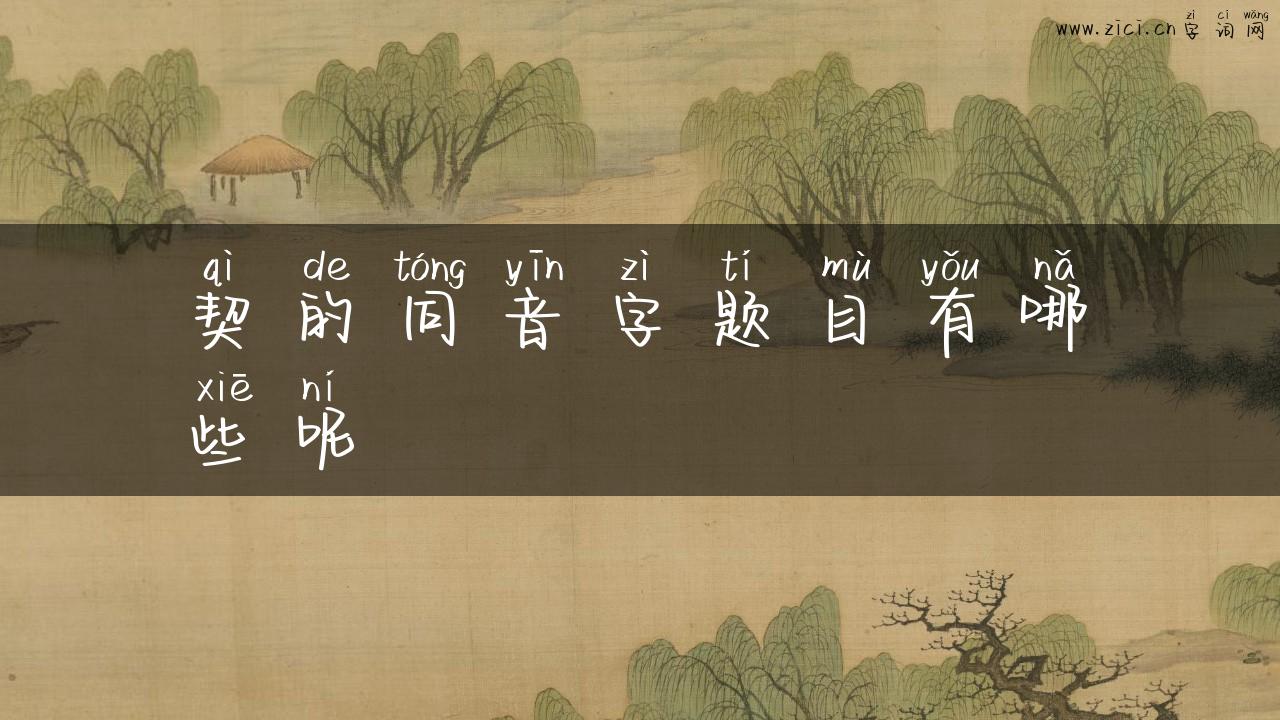 zì cí wǎng
www.zici.cn 字 词 网
qì de tóng yīn zì tí mù yǒu nǎ
契 的 同 音 字 题 目 有 哪
xiē ní
些 呢